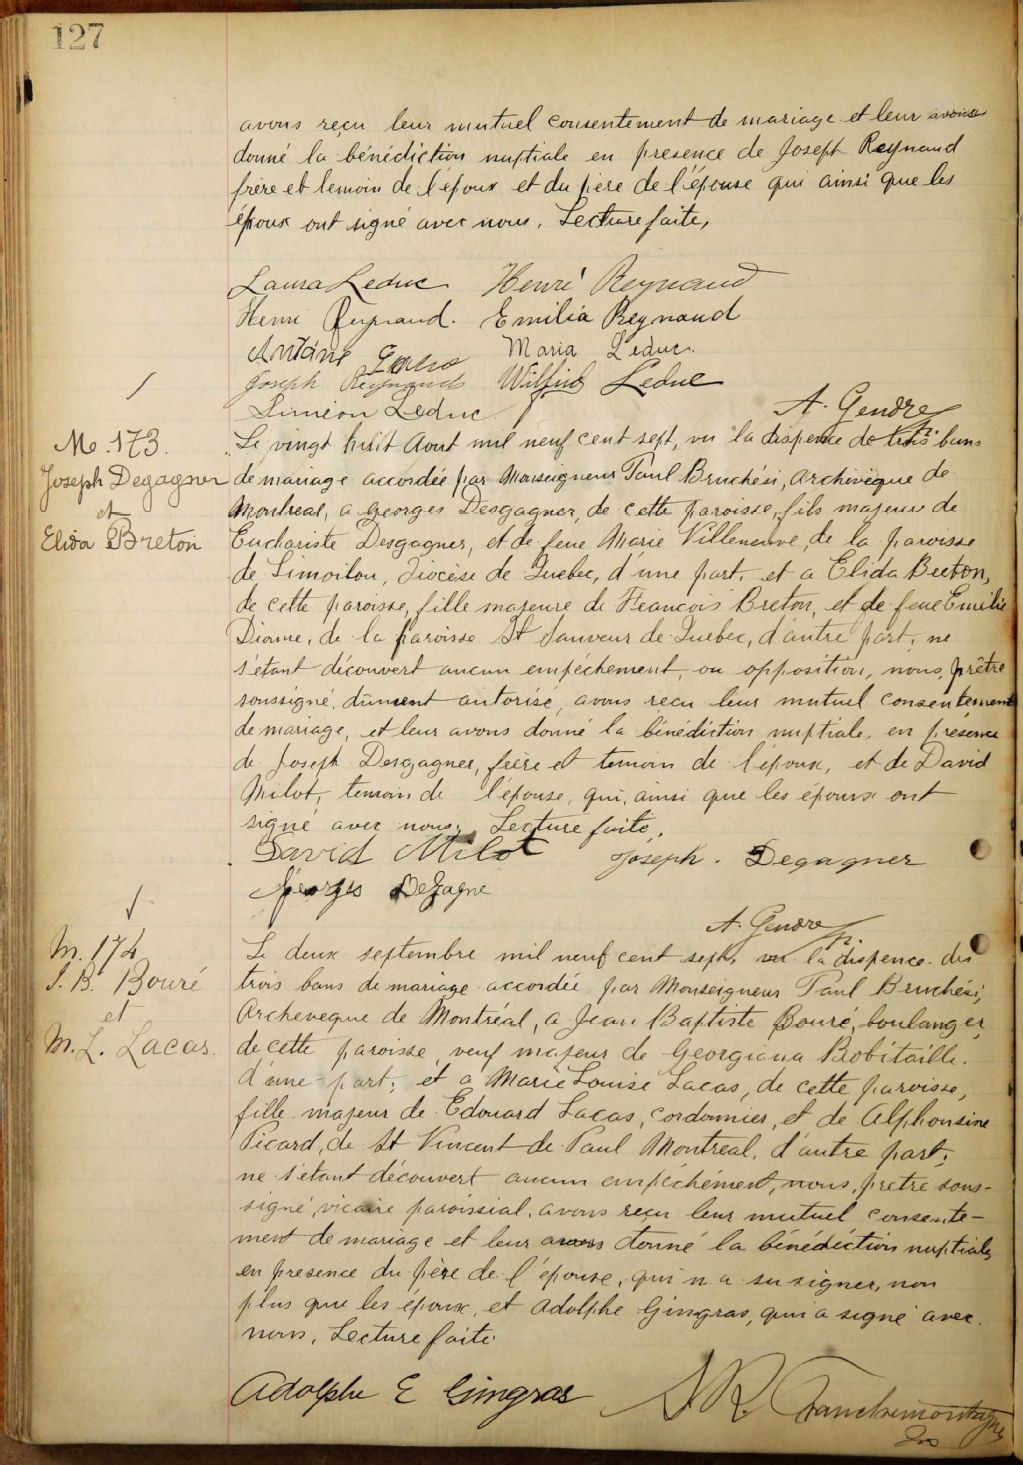 127
avons reçu leur mutuel consentement de mariage et leur avons
donné la bénédiction nuptiale en presence de Joseph Reynaud
frère et temoin de l'époux et du père de l'épouse qui ainsi que les
époux ont signé avec nous. Lecture faite,
Laura Leduc Henri Reynaud
Henri Reynaud. Emilia Reynaud
Antoine Maria Leduc.
Joseph Reynaud Wilfrid Leduc
Siméon Leduc
A. Gendre
M. 173.
Joseph Degagner
et
Elida Breton
Le vingt huit Aout mil neuf cent sept, vu la dispense de trois bans
de mariage accordée par Monseigneur Paul Bruchési, archevêque de
Montreal, a Georges Desgagner, de cette paroisse, fils majeur de
Euchariste Desgagner, et de feue Marie Villeneuve, de la paroisse
de Limoilou, diocèse de Quebec, d'une part, et a Elida Breton,
de cette paroisse, fille majeure de Francois Breton, et de feue Emilie
Dionne, de la paroisse St Sauveur de Quebec, d'autre part, ne
s'etant découvert aucun empéchement, ou opposition, nous, prêtre
soussigné, dûment autorisé, avons reçu leur mutuel consentement
de mariage, et leur avons donné la bénédiction nuptiale, en présence
de Joseph Desgagner, frère et temoin de l'époux, et de David
Milot, temoin de l'épouse, qui, ainsi que les époux ont
signé avec nous. Lecture faite,
David Milot Joseph. Degagner
Georges DeGagne
A. Gendre
p.
M. 174
J. B. Bouré
et
M. L. Lacas.
Le deux septembre mil neuf cent sept, vu la dispence des
trois bans de mariage accordée par Monseigneur Paul Bruchési,
Archeveque de Montréal, a Jean Baptiste Bouré, boulanger,
de cette paroisse, veuf majeur de Georgiana Robitaille.
d'une part, et a Marie Louise Lacas, de cette paroisse,
fille majeur de Edouard Lacas, cordonnier, et de Alphonsine
Picard, de St Vincent de Paul Montreal, d'autre part,
ne s'etant découvert aucun empéchément, nous, pretre sous-
signé, vicaire paroissial, avons reçu leur mutuel consente-
ment de mariage et leur avons donné la bénédiction nuptiale
en presence du père de l'épouse, qui n a su signer, non
plus que les époux, et Adolphe Gingras, qui a signé avec
nous. Lecture faite.
Adolphe E Gingras